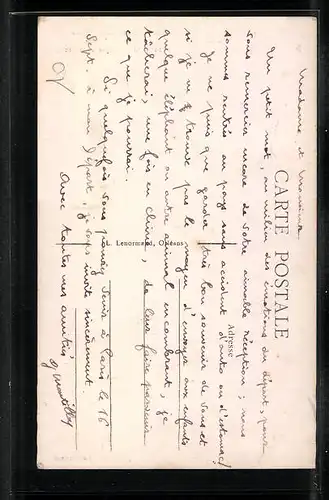 Madame et Monsieur
Un petit mot, au milieu des émotions du départ, pour
vous remercier encore de votre aimable réception ; nous
sommes rentrés au pays sans accident d'auto ou d'estomac !
Je ne puis que garder très bon souvenir de vous et
si je ne trouve pas le moyen d'envoyer aux enfants
quelque éléphant ou autre animal encombrant, je
tâcherai, une fois en Chine, de leur faire parvenir
ce que je pourrai.
Si quelquefois vous pouviez venir à Paris le 16
Sept. à mon départ, je vous invite sincèrement.
Avec toutes mes amitiés
CARTE POSTALE
Adresse
Lenormand, Orléans